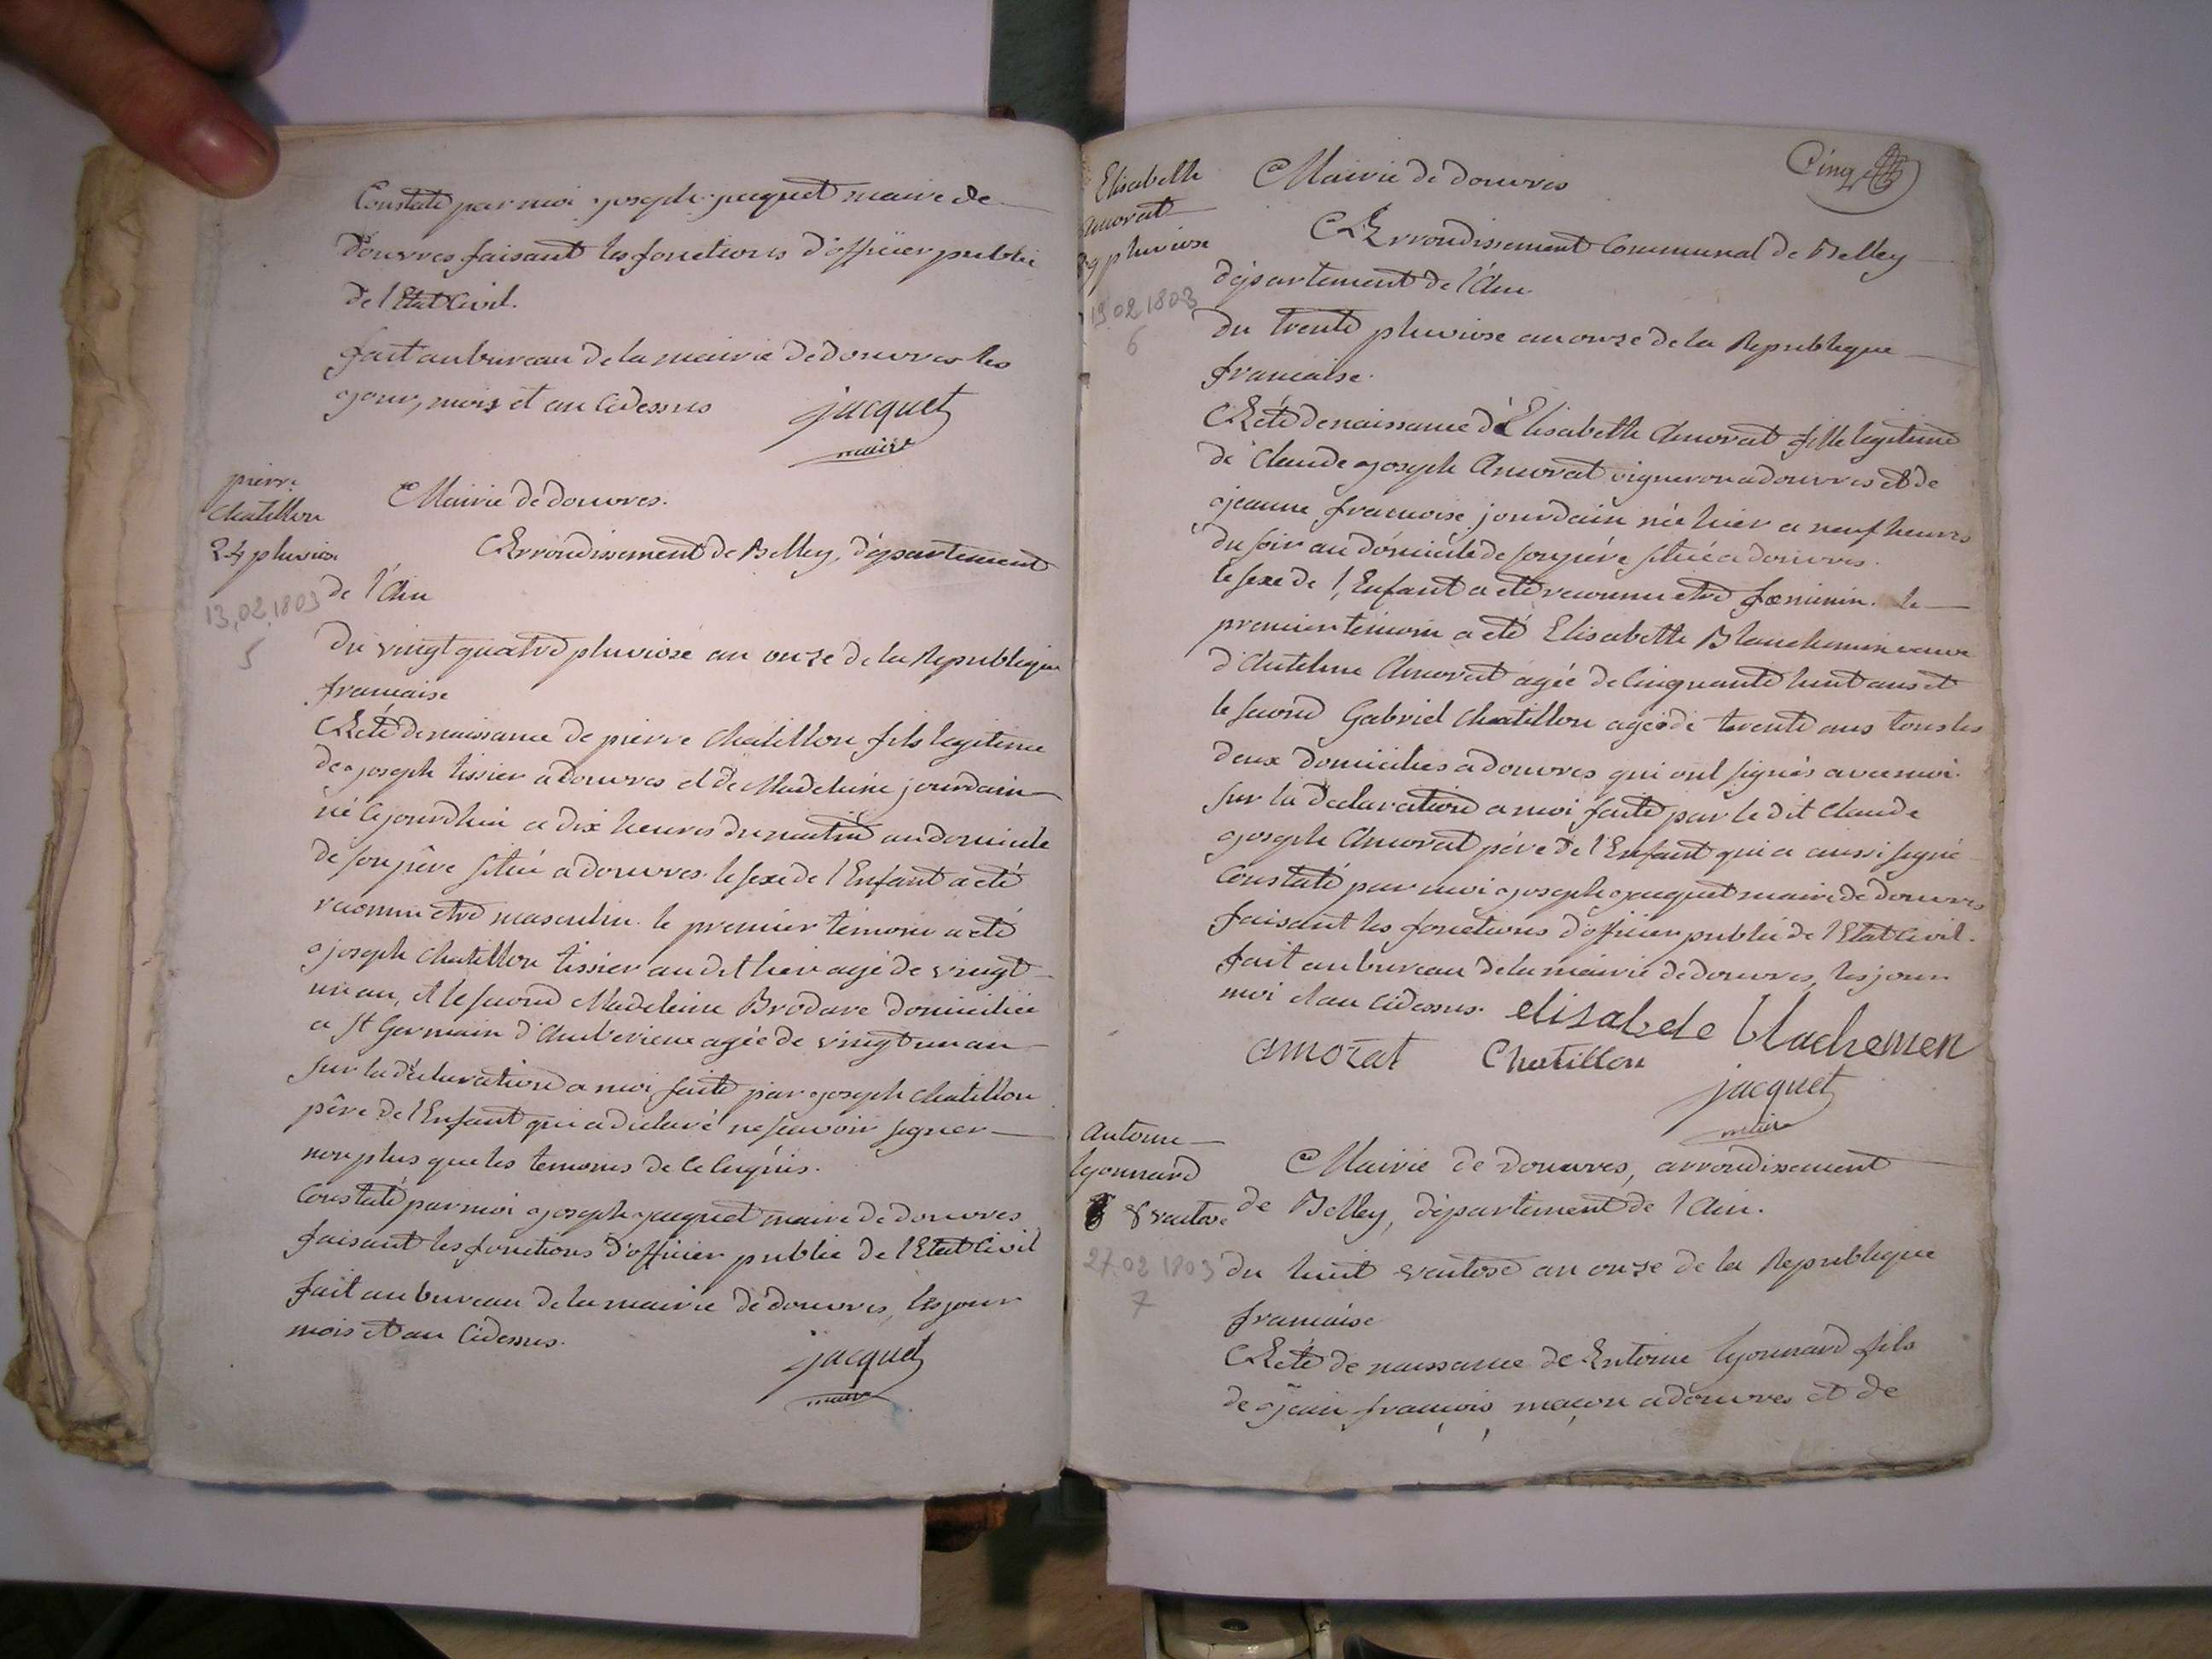 Constaté par moi joseph jacquet maire de
douvres faisant les fonctions d'officier public
de l'Etat Civil.
fait au bureau de la mairie de douvres les
jour, mois et an cidessus jacquet
maire
pierre
Chatillon
24 pluviose
13,02,1803
5
Mairie de douvres.
Arrondissement de Belley, département
de l'Ain
du vingt quatre pluviose an onze de la Republique
francaise
Acte de naissance de pierre Chatillon fils legitime
de joseph tissier a douvres et de Madeleine jourdain
né cejourdhui a dix heures du matin au domicile
de son père situé a douvres. le sexe de l'Enfant a eté
reconnu etre masculin. le premier temoin a eté
joseph Chatillon tissier au dit lieu agé de vingt
un an, et le second Madeleine Brodare domiciliée
a St Germain d'Amberieux agée de vingt un an
sur la déclaration a moi faite par joseph Chatillon
père de l'Enfant qui a déclaré ne scavoir signer
non plus que les temoins de ce requis.
Constaté par moi joseph jacquet maire de douvres
faisant les fonctions d'officier public de l'Etat Civil
fait au bureau de la mairie de douvres, les jour
mois et an Cidessus.
jacquet
maire
Cinq
Elisabeth
amorat
29 pluviose
19 02 1803
6
Mairie de douvres
Arrondissement Communal de Belley
département de l'Ain
du trente pluviose an onze de la Republique
francaise.
Acte de naissance d'Elisabeth Amorat fille legitime
de Claude joseph Amorat vigneron a douvres et de
jeanne francoise jourdain née hier a neuf heures
du soir au domicile de son père situé a douvres.
le sexe de l'Enfant a eté reconnu etre fœminin. le
premier temoin a eté Elisabeth Blanchemin veuve
d'Antelme Amorat agée de Cinquante huit ans et
le second Gabriel Chatillon agé de trente ans tous les
deux domiciliés a douvres qui ont signés avec moi.
sur la declaration a moi faite par le dit Claude
joseph Amorat père de l'Enfant qui a aussi signé
Constaté par moi joseph jacquet maire de douvres
faisant les fonctions d'officier public de l'Etat Civil.
fait au bureau de la mairie de douvres, les jour
moi et an cidessus. elisabete blachemen
amorat Chatillon
jacquet
maire
Antoine
lyonnard
8 ventose
27.02 1803
7
Mairie de douvres, arrondissement
de Belley, département de l'Ain.
du huit ventose an onze de la Republique
francaise
Acte de naissance de Antoine lyonnard fils
de jean francois, maçon a douvres et de